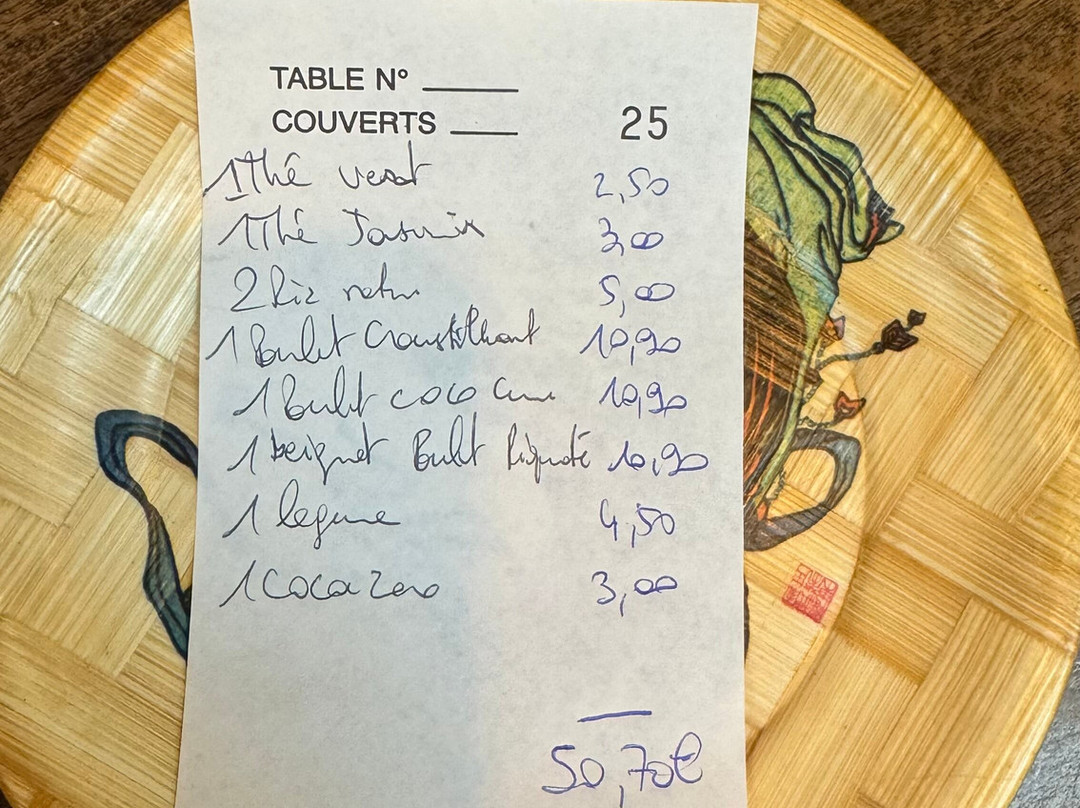 TABLE N° ____
COUVERTS ____ 25
1 Thé vert 2,50
1 Thé Jasmin 3,00
2 Riz natu 5,00
1 Poulet Croustillant 10,90
1 Poulet coco Cur 10,90
1 beignet Poulet 10,90
1 legume 4,50
1 Coca Zero 3,00
50,70€